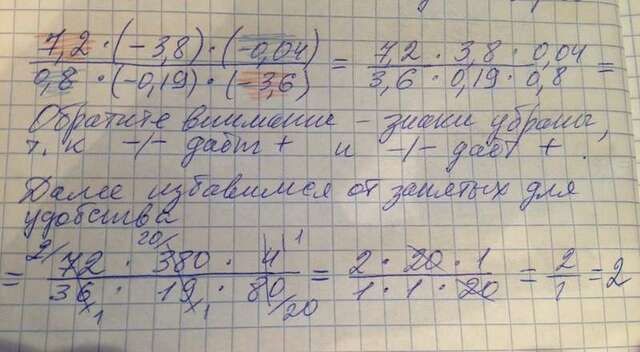 7,2 · (−3,8) · (−0,04) / 0,8 · (−0,19) · (−3,6) = 7,2 · 3,8 · 0,04 / 3,6 · 0,19 · 0,8 =
Обратите внимание – знаки убраны,
т. к −/− дают + и −/− даёт + .
Далее избавимся от запятых для
удобства
= 2/ 72 · 20/ 380 · 4 1 / 36 /1 · 19 /1 · 80 /20 = 2 · 20 · 1 / 1 · 1 · 20 = 2/1 = 2